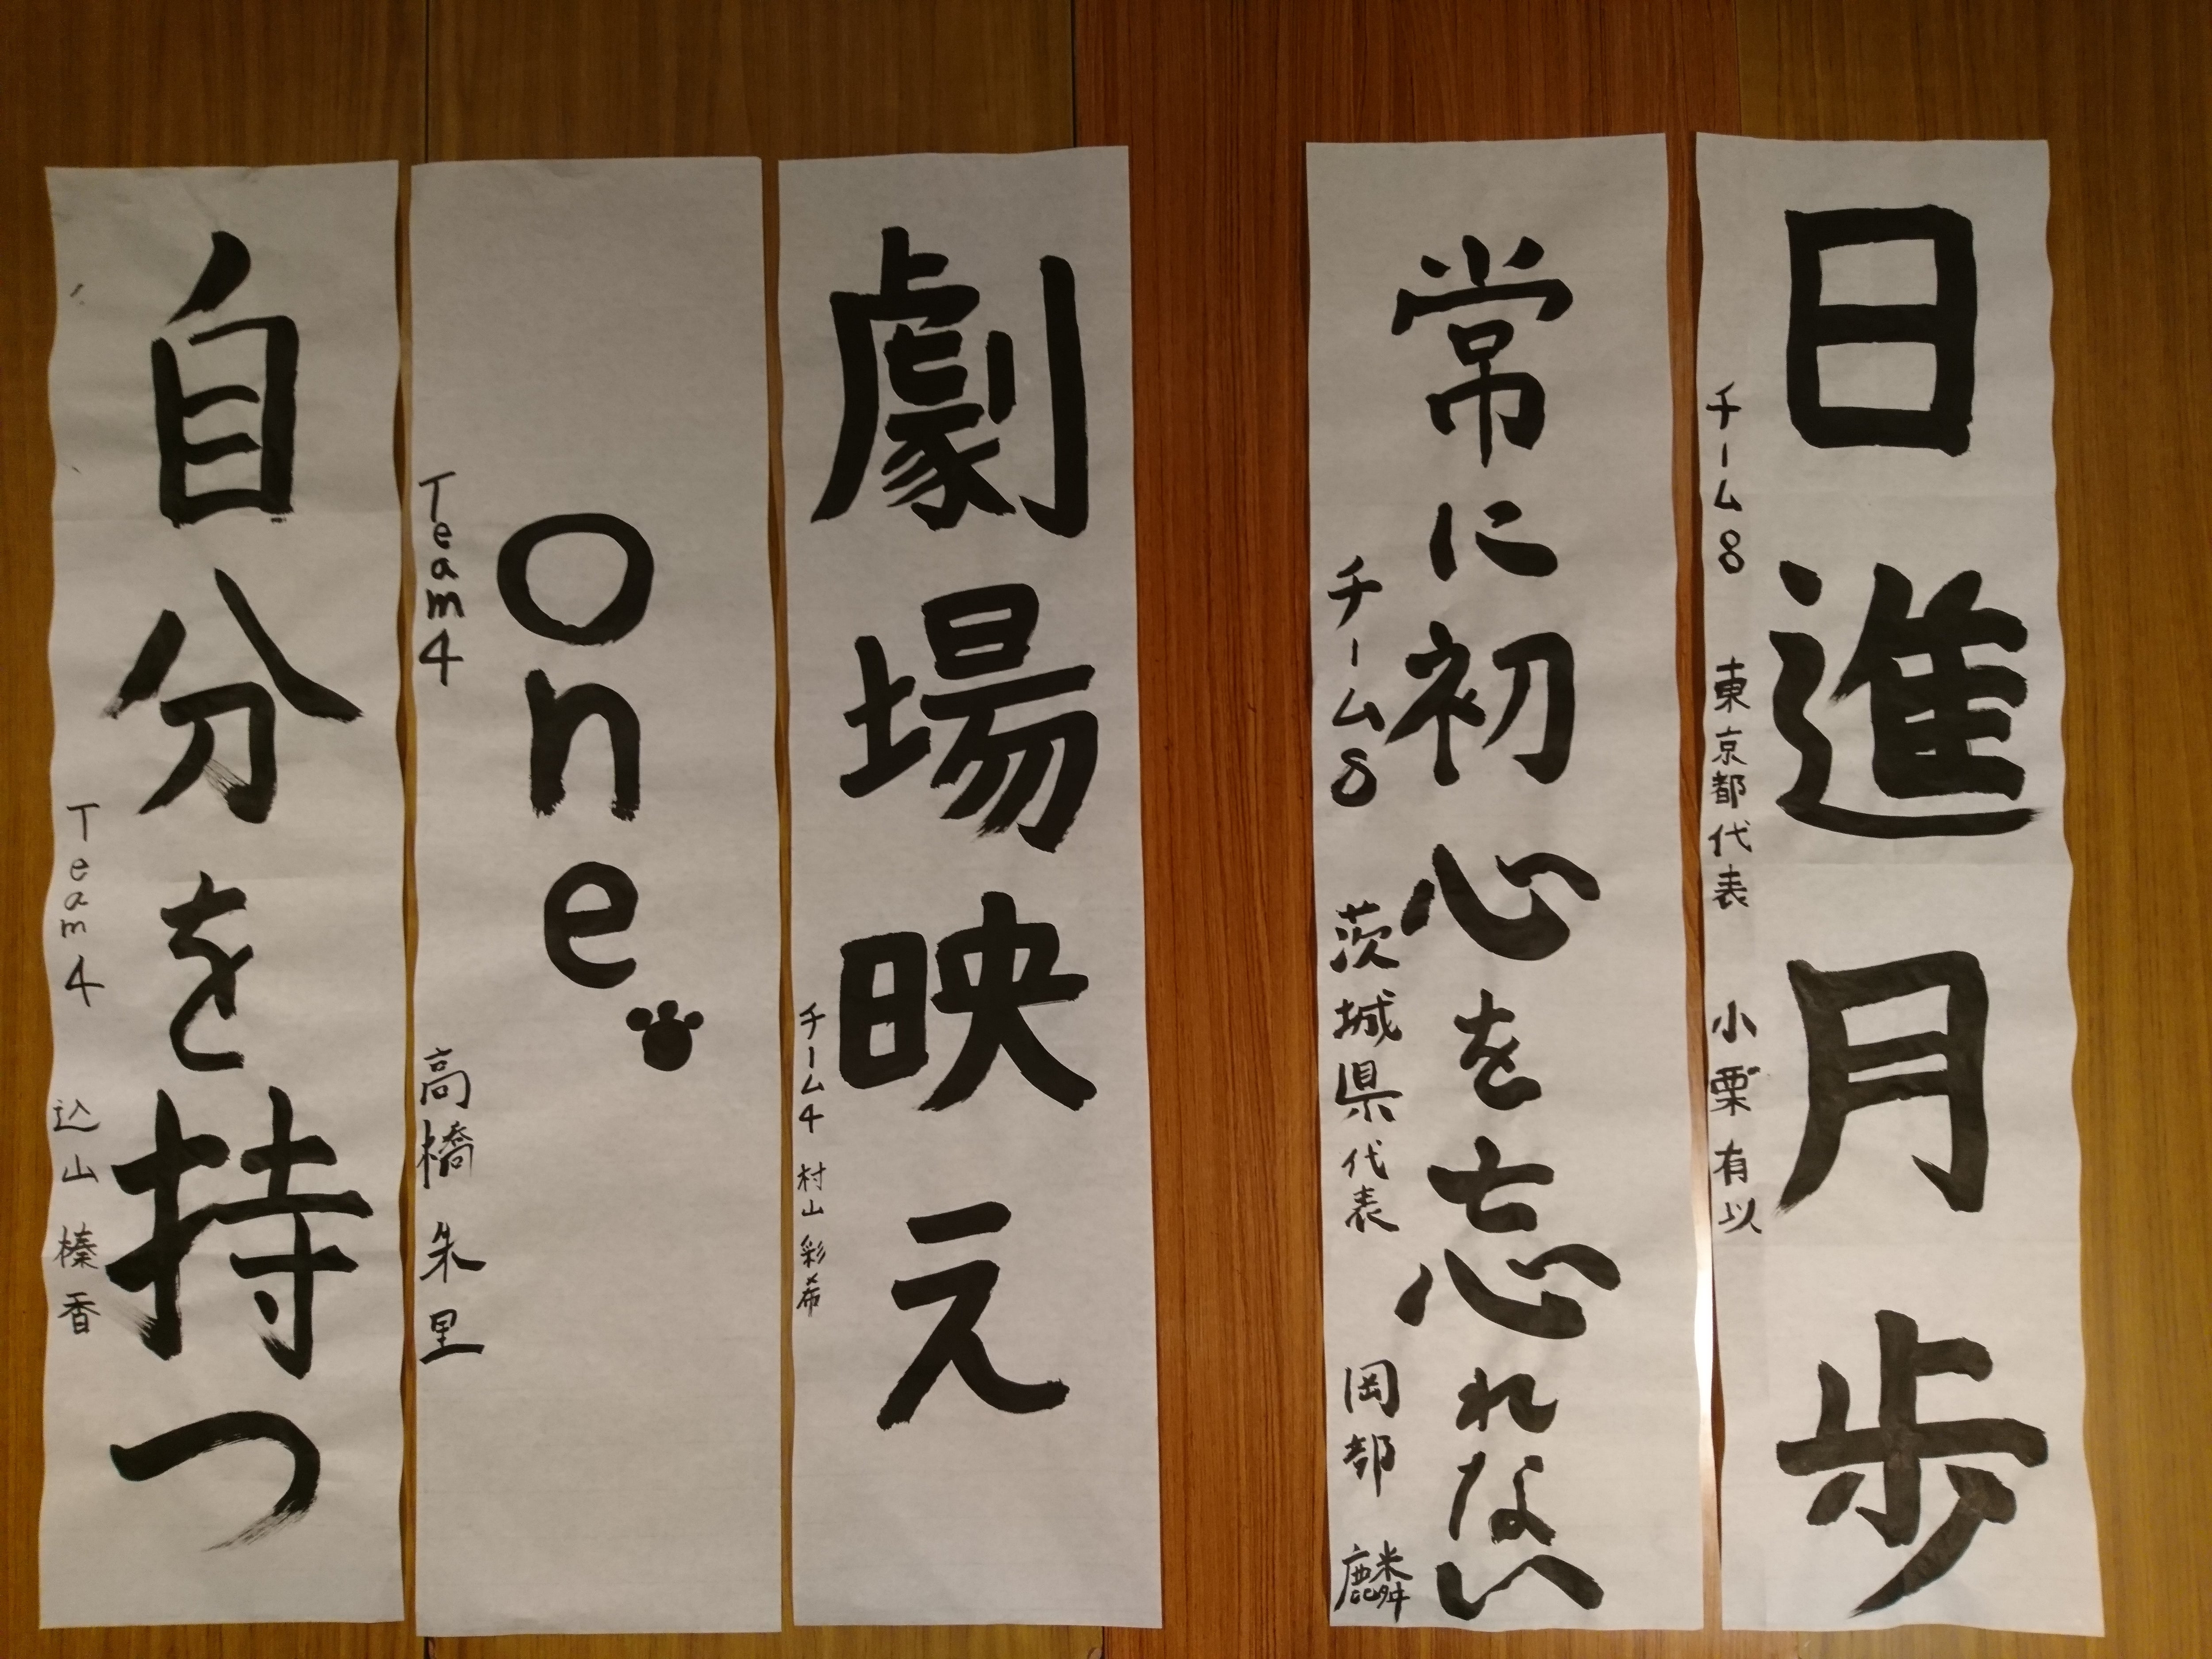 日進月歩
チーム8 東京都代表 小栗有以
常に初心を忘れない
チーム8 茨城県代表 岡部 麟
劇場映え
チーム4 村山彩希
One
Team4 高橋朱里
自分を持つ
Team4 込山榛香